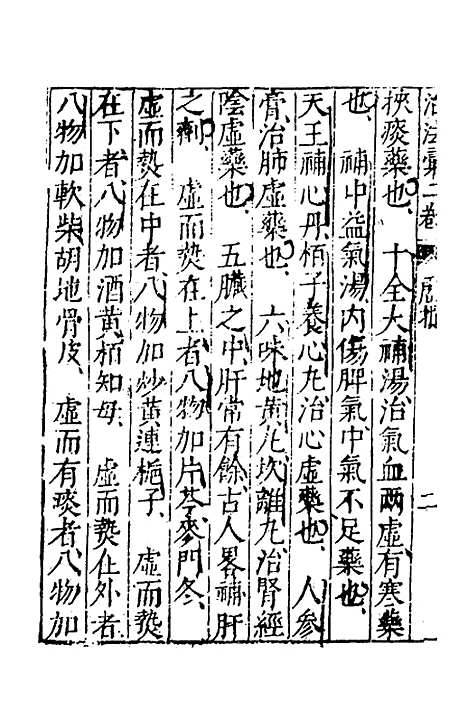 治法彙二卷 虛損 二
挾痰藥也、十全大補湯治氣血兩虛有寒藥
也、補中益氣湯內傷脾氣中氣不足藥也、
天王補心丹栢子養心丸治心虛藥也、人參
膏治肺虛藥也、六味地黃丸坎離丸治腎經
陰虛藥也、五臟之中肝常有餘、古人畧補肝
之劑、虛而𤍠在上者、八物加片芩麥門冬、
虛而𤍠在中者、八物加炒黃連梔子、虛而𤍠
在下者、八物加酒黃栢知母、虛而𤍠在外者
八物加軟柴胡地骨皮、虛而有痰者、八物加